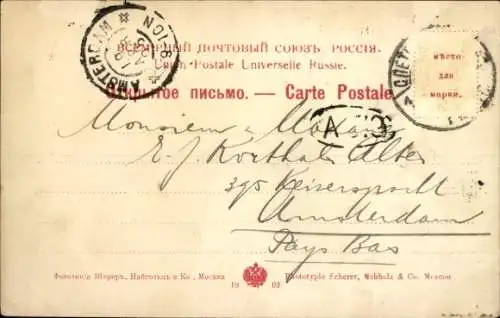 AMSTERDAM
ВСЕМІРНЫЙ ПОЧТОВЫЙ СОЮЗЪ. РОССІЯ.
Union Postale Universelle Russie.
Открытое письмо. — Carte Postale.
мѣсто
для
марки.
Monsieur & Madame
E. J. Korthals Altes
395 Keizersgracht
Amsterdam
Pays Bas
Фототипія Шереръ, Набгольцъ и Ко., Москва
Phototypie Scherer, Nabholz & Co. Moscou
19 03